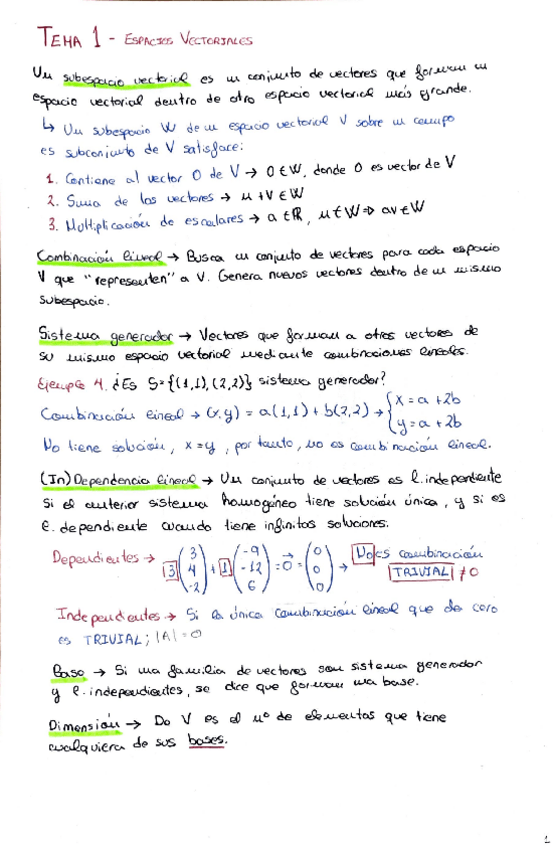 TEMA 1 - ESPACIOS VECTORIALES
Un subespacio vectorial es un conjunto de vectores que forman un
espacio vectorial dentro de otro espacio vectorial más grande.
↳ Un subespacio W de un espacio vectorial V sobre un campo
es subconjunto de V satisface:
1. Contiene al vector 0 de V → 0 ∈ W, donde 0 es vector de V
2. Suma de los vectores → u + v ∈ W
3. Multiplicación de escalares → a ∈ ℝ, u ∈ W ⇒ av ∈ W
Combinación lineal → Busca un conjunto de vectores para cada espacio
V que "representen" a V. Genera nuevos vectores dentro de un mismo
subespacio.
Sistema generador → Vectores que forman a otros vectores de
su mismo espacio vectorial mediante combinaciones lineales.
Ejemplo 4. ¿Es S={(1,1),(2,2)} sistema generador?
Combinación lineal → (x,y) = a(1,1) + b(2,2) → { x = a + 2b
y = a + 2b
No tiene solución, x=y, por tanto, no es combinación lineal.
(In)Dependencia lineal → Un conjunto de vectores es l. independiente
si el anterior sistema homogéneo tiene solución única, y si es
l. dependiente cuando tiene infinitas soluciones.
Dependientes → 3 (3 4 -2) + 1 (-9 -12 6) = 0⃗ = (0 0 0) → No es combinación
TRIVIAL ≠ 0
Independientes → Si la única combinación lineal que da cero
es TRIVIAL; |A| = 0
Base → Si una familia de vectores son sistema generador
y l. independientes, se dice que forman una base.
Dimensión → De V es el nº de elementos que tiene
cualquiera de sus bases.
1